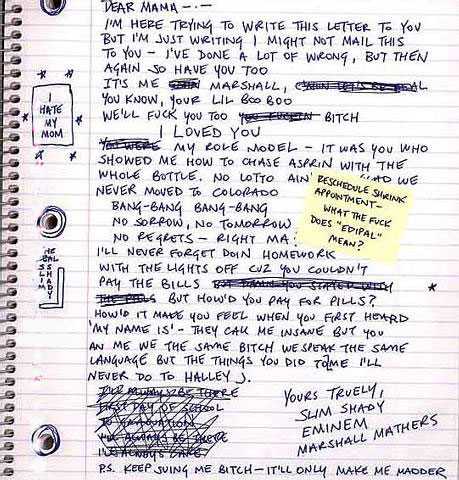 DEAR MAMA —·—
I'M HERE TRYING TO WRITE THIS LETTER TO YOU
BUT I'M JUST WRITING I MIGHT NOT MAIL THIS
TO YOU - I'VE DONE A LOT OF WRONG, BUT THEN
AGAIN SO HAVE YOU TOO
IT'S ME MARSHALL,
YOU KNOW, YOUR LIL BOO BOO
WE'LL FUCK YOU TOO BITCH
I LOVED YOU
YOU WERE MY ROLE MODEL - IT WAS YOU WHO
SHOWED ME HOW TO CHASE ASPRIN WITH THE
WHOLE BOTTLE. NO LOTTO AIN'
NEVER MOVED TO COLORADO
BANG-BANG BANG-BANG
NO SORROW, NO TOMORROW
NO REGRETS - RIGHT MA
I'LL NEVER FORGET DOIN HOMEWORK
WITH THE LIGHTS OFF CUZ YOU COULDN'T
PAY THE BILLS
BUT HOW'D YOU PAY FOR PILLS?
HOW'D IT MAKE YOU FEEL WHEN YOU FIRST HEARD
'MY NAME IS' - THEY CALL ME INSANE BUT YOU
AN ME WE THE SAME BITCH WE SPEAK THE SAME
LANGUAGE BUT THE THINGS YOU DID TO ME I'LL
NEVER DO TO HALLEY J.
I'LL ALWAYS BE THERE
FIRST DAY OF SCHOOL
TO GRADUATION
I'LL ALWAYS BE THERE
I'LL ALWAYS CARE
YOURS TRUELY,
SLIM SHADY
EMINEM
MARSHALL MATHERS
P.S. KEEP SUING ME BITCH - IT'LL ONLY MAKE ME MADDER
I
HATE
MY
MOM
RESCHEDULE SHRINK
APPOINTMENT-
WHAT THE FUCK
DOES "EDIPAL"
MEAN?